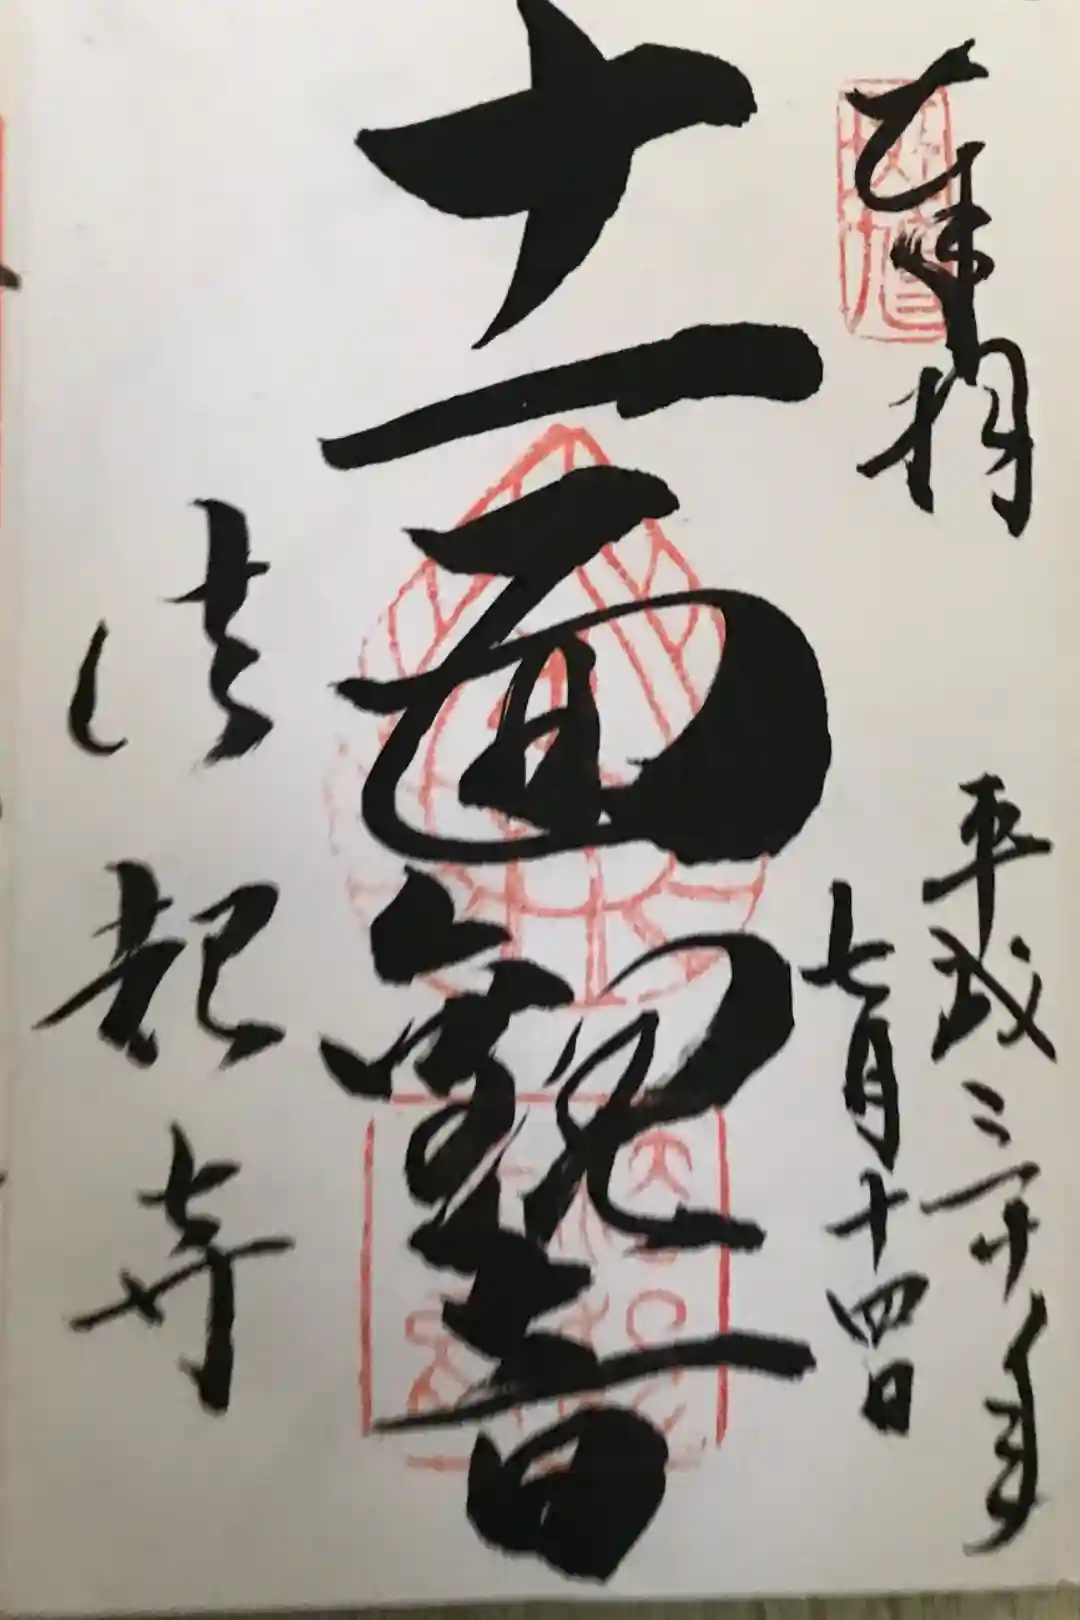 奉拝
平成三十年
七月十四日
十一面観音
法起寺